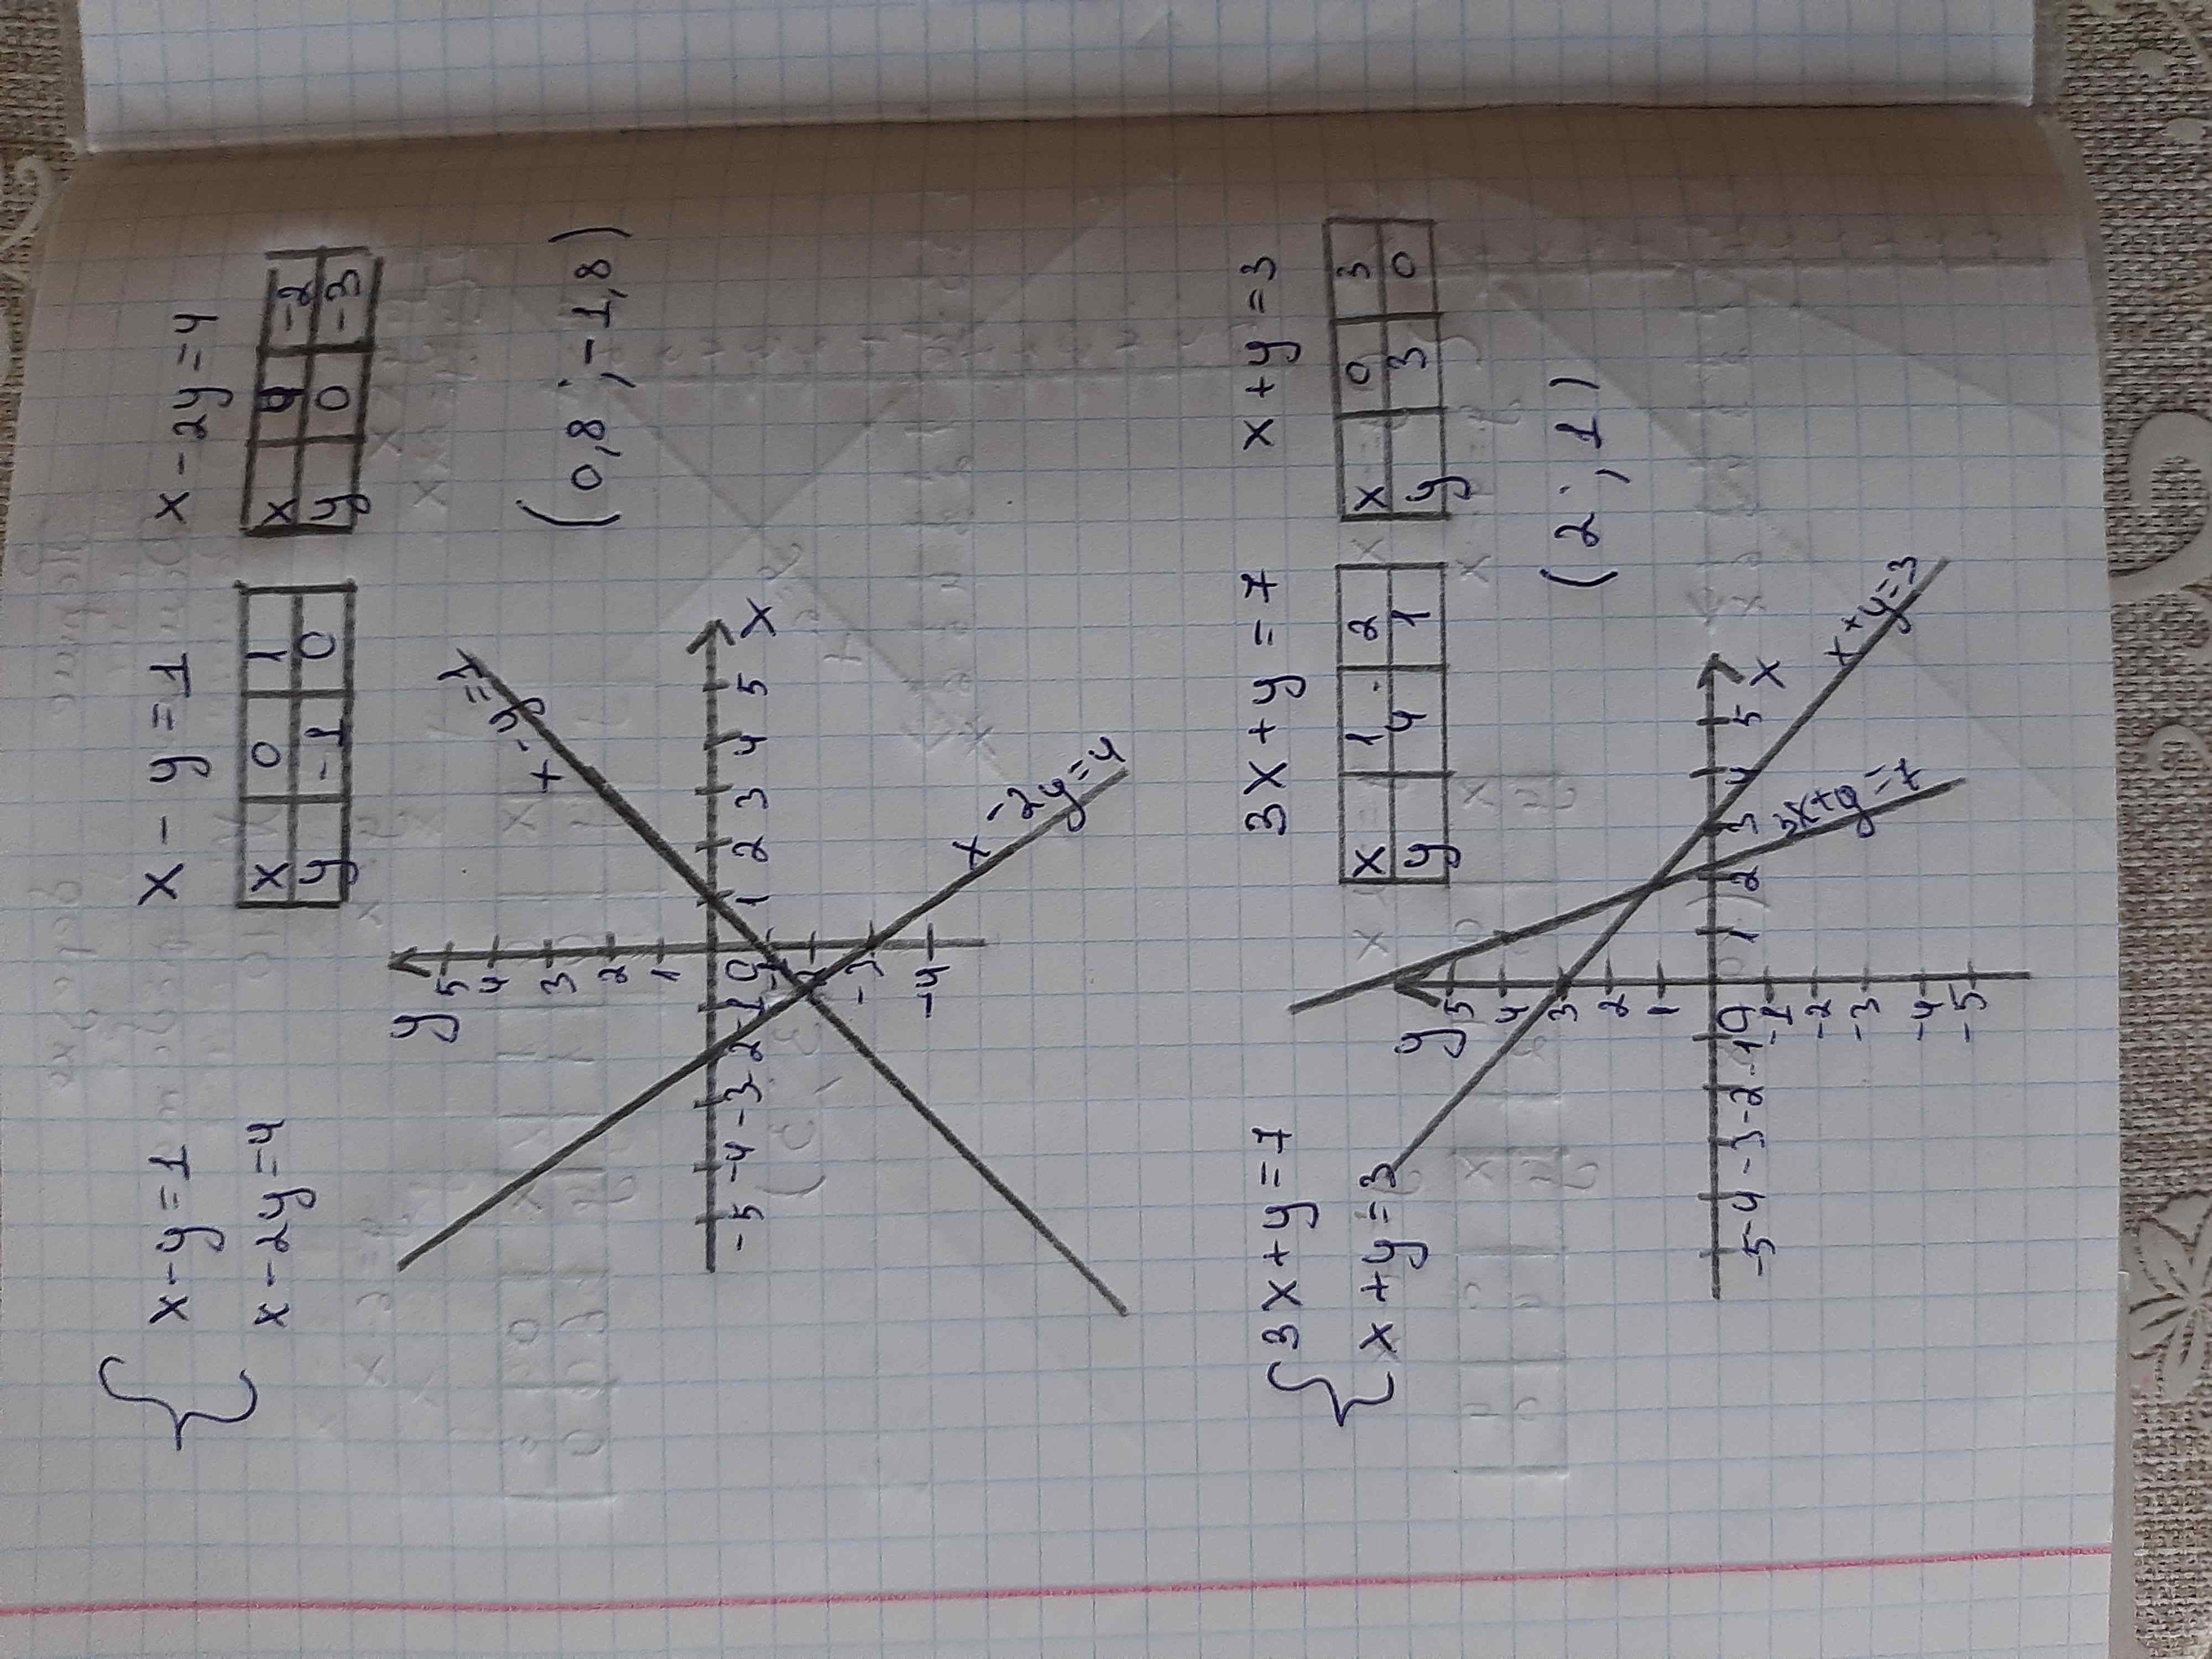 { x - y = 1
x - 2y = 4
x - y = 1
x 0 1
y -1 0
x - 2y = 4
x 4 -2
y 0 -3
y
5
4
3
2
1
0
-5 -4 -3 -2 -1 1 2 3 4 5 x
-1
-2
-3
-4
x - y = 1
x - 2y = 4
(0,8 ; -1,8)
{ 3x + y = 7
x + y = 3
3x + y = 7
x 1 2
y 4 1
x + y = 3
x 0 3
y 3 0
y
5
4
3
2
1
0
-5 -4 -3 -2 -1 1 2 3 4 5 x
-1
-2
-3
-4
-5
3x + y = 7
x + y = 3
(2 ; 1)